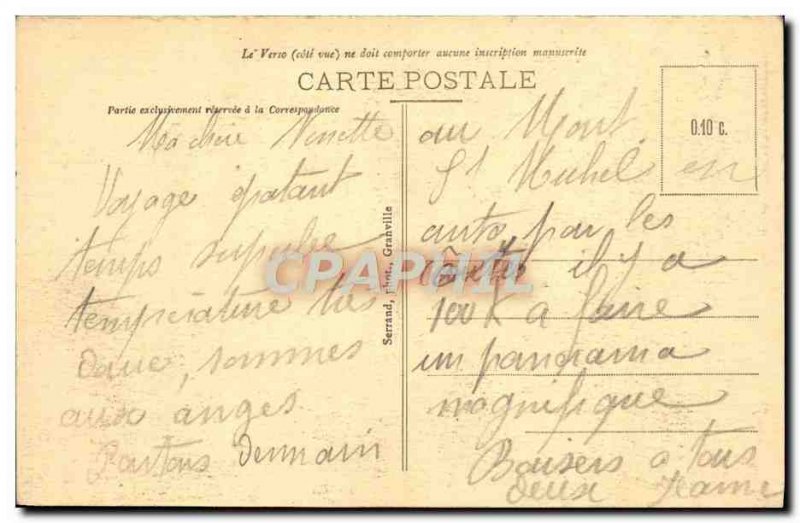 Le Verso (côté vue) ne doit comporter aucune inscription manuscrite
CARTE POSTALE
Partie exclusivement réservée à la Correspondance
0.10 c.
Ma chère Nénette
Voyage épatant
temps superbe
température très
douce, sommes
aux anges
Partons demain
Serrand, phot., Granville
au Mont
St Michel en
auto par les
côtes il y a
100 K à faire
un panorama
magnifique
Baisers a tous
deux Jeanne
CPAPHIL